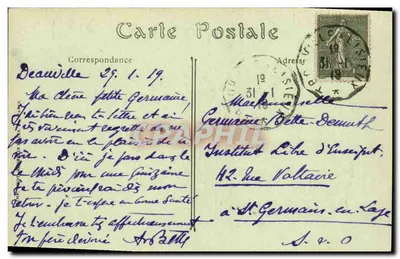 Carte Postale
Correspondance
Adresse
Deauville 29.1.19.
Ma chère petite Germaine,
J'ai bien reçu ta lettre et ai
très vivement regretté de ne
pas avoir eu le plaisir de
D'ici je pars dans le
le Midi pour une quinzaine
Je te préviendrai de mon
retour. Je t'espère en bonne santé
Je t'embrasse affectueusement
Ton père dévoué
Mademoiselle
Germaine Demuth
Institut Libre d'Enseignt.
42 Rue Voltaire
à St. Germain-en-Laye
S. & O
31-1
19
31-1